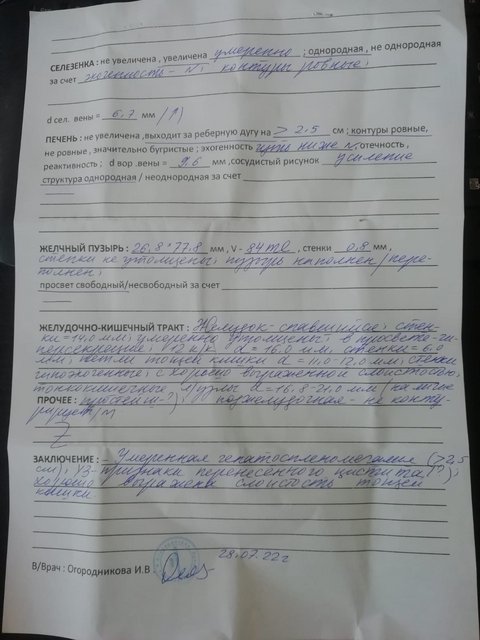 СЕЛЕЗЕНКА : не увеличена , увеличена умеренно ; однородная , не однородная
за счет эхогенность - N; контуры ровные;
d сел. вены = 6,7 мм /↑)
ПЕЧЕНЬ : не увеличена ,выходит за реберную дугу на > 2,5 см ; контуры ровные,
не ровные , значительно бугристые ; эхогенность чуть ниже N, отечность ,
реактивность ; d вор .вены = 9,6 мм ,сосудистый рисунок усиление
структура однородная / неоднородная за счет
ЖЕЛЧНЫЙ ПУЗЫРЬ : 26,8*77,8 мм , V - 84ml , стенки 0,8 мм ,
стенки не утолщены; пузырь наполнен/пере-
полнен;
просвет свободный/несвободный за счет
ЖЕЛУДОЧНО-КИШЕЧНЫЙ ТРАКТ : Желудок-спавшийся; стен-
ки = 14,0 мм; умеренно утолщены; в просвете-ги-
перэхогенное; 12 п.к/ d = 16.0 мм, стенки = 6.0
мм; петли тощей кишки d = 11.0-12.0 мм; стенки
гипоэхогенные с хорошо выраженной слоистостью,
d = 16,8-21,0 мм (наличие
ПРОЧЕЕ : ?) поджелудочная - не конту-
рирует/м
Z
ЗАКЛЮЧЕНИЕ : - Умеренная гепатоспленомегалия (>2,5
см); УЗ-признаки перенесенного цистита (?);
хорошо выражена слоистость тощей
кишки
28.07.22г
В/Врач : Огородникова И.В